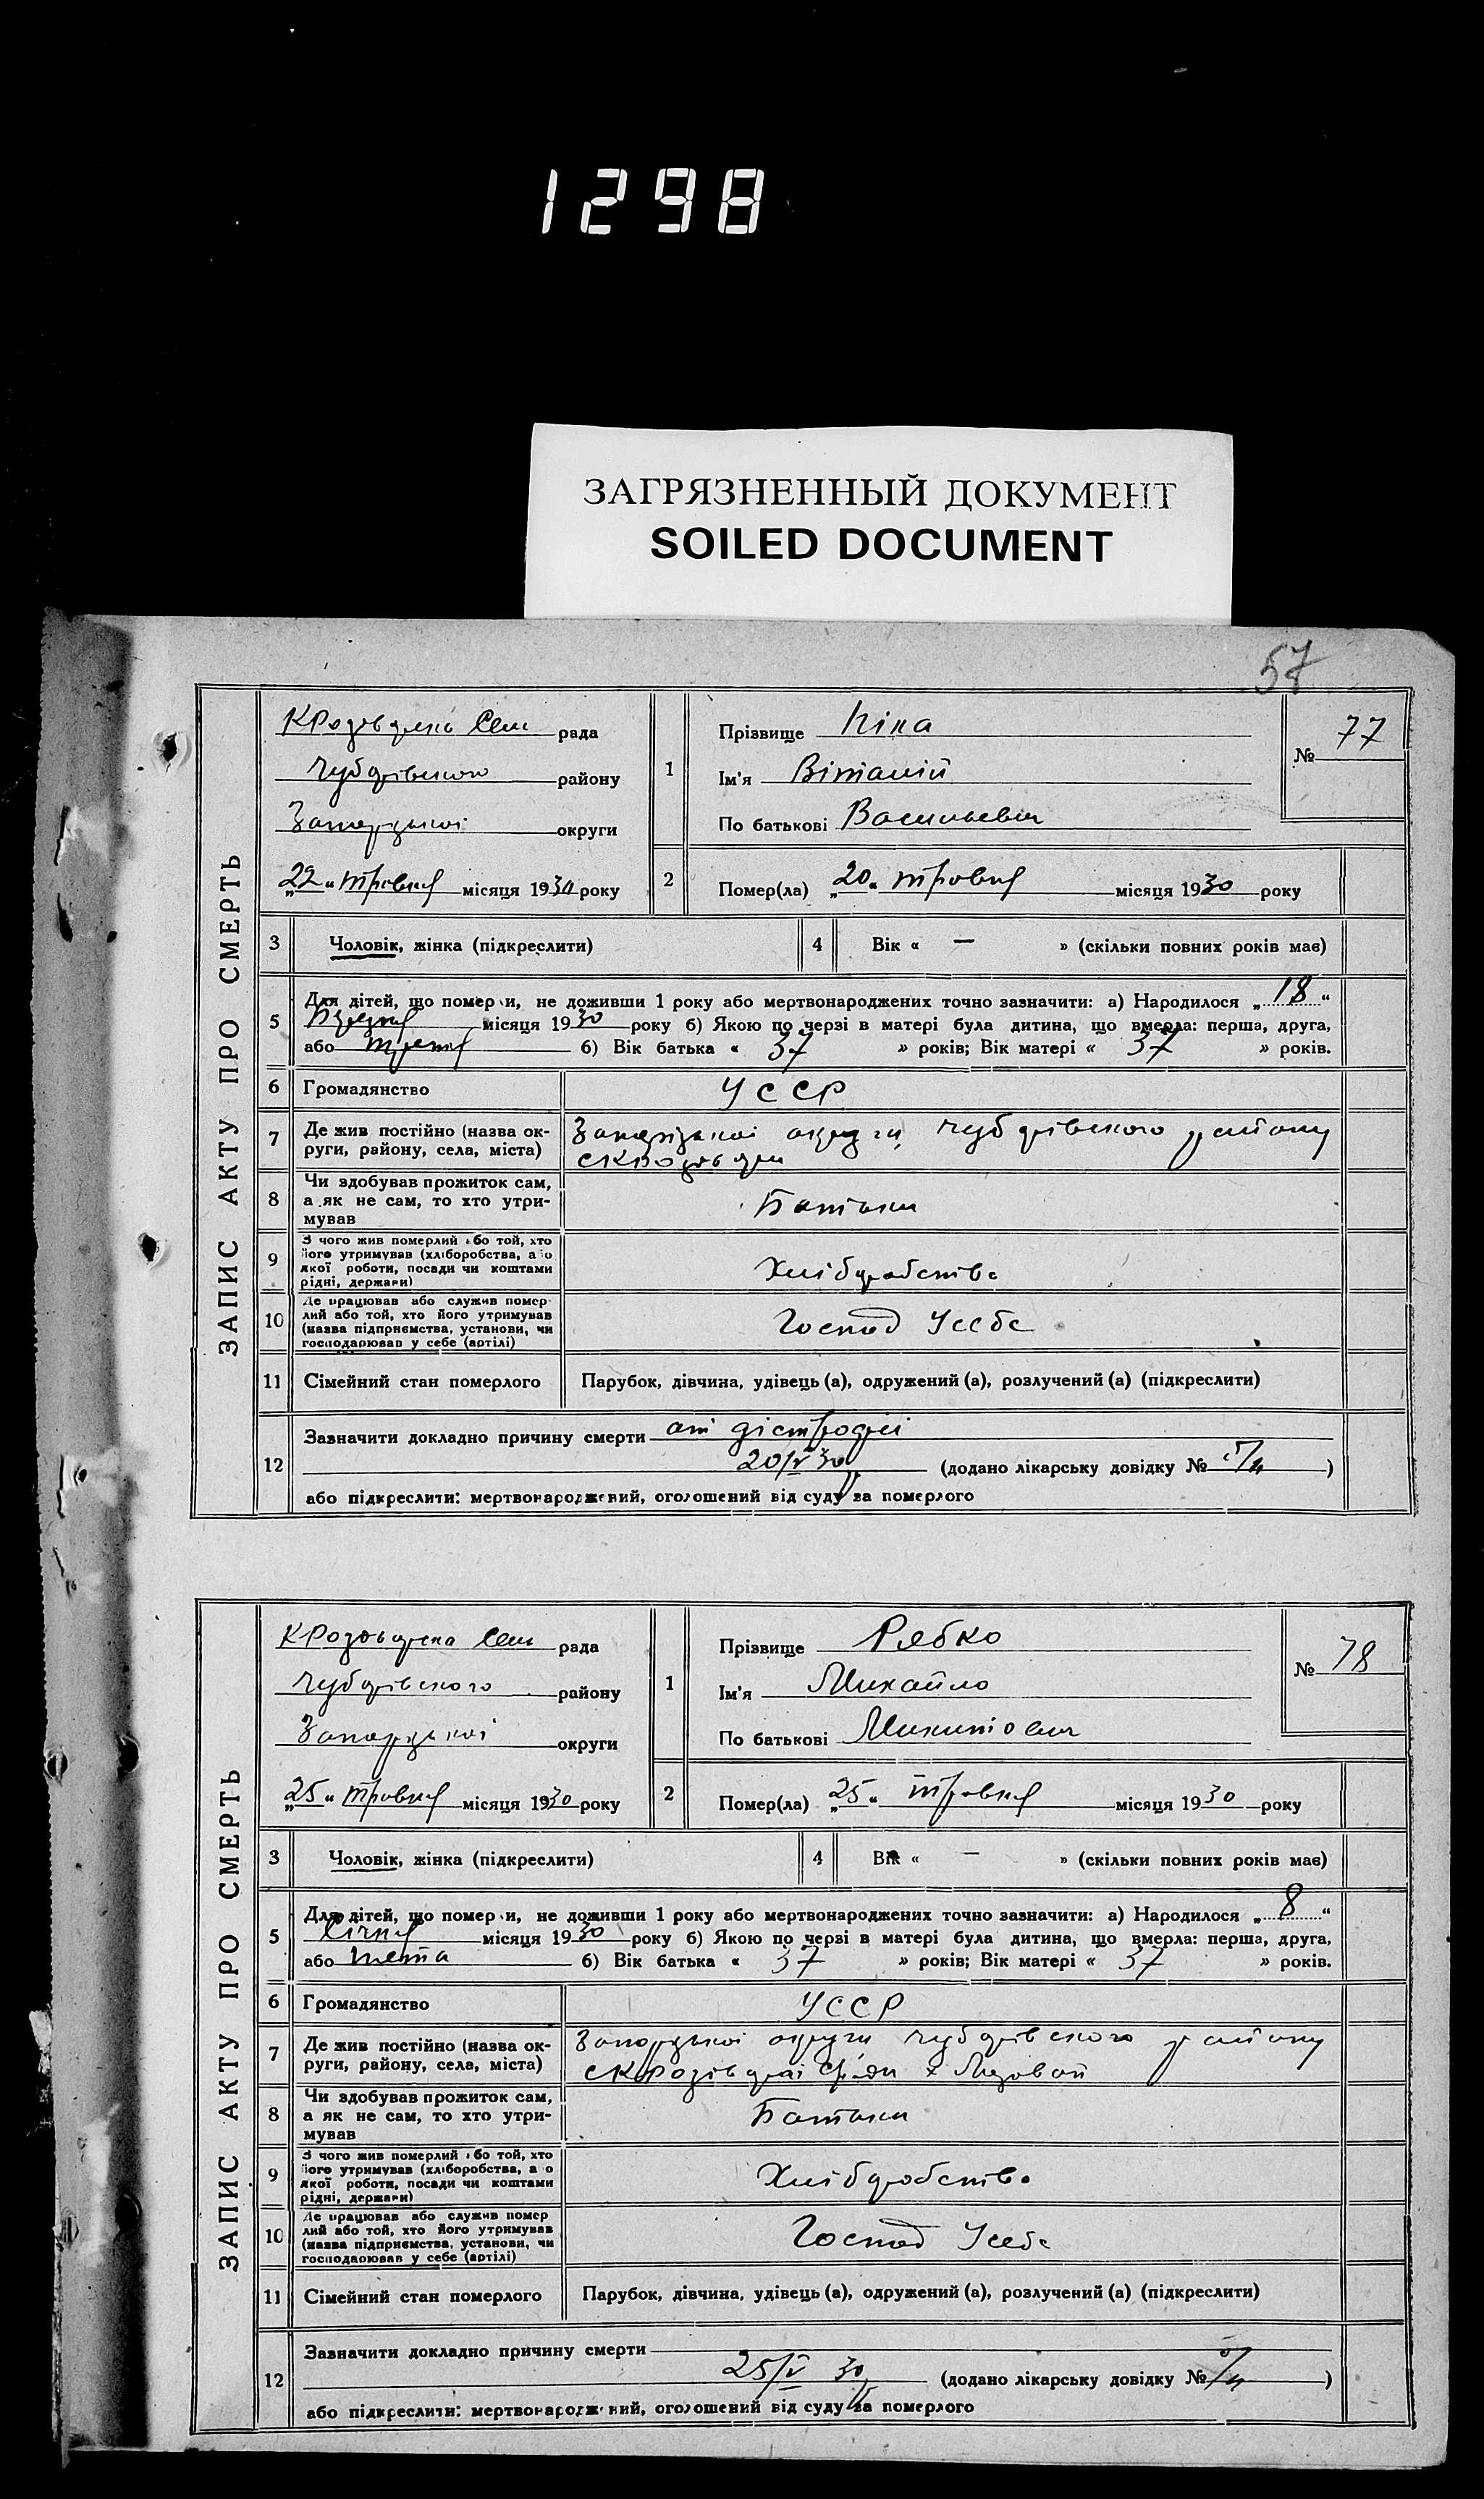 1298
ЗАГРЯЗНЕННЫЙ ДОКУМЕНТ
SOILED DOCUMENT
57
ЗАПИС АКТУ ПРО СМЕРТЬ
рада
району
округи
„22“ травня місяця 1930 року
1
Прізвище Кіпа
Ім'я Віталій
По батькові Васильевич
№ 77
2
Помер(ла) „20“ травня місяця 1930 року
3 Чоловік, жінка (підкреслити)
4 Вік « — » (скільки повних років має)
5 Для дітей, що померли, не доживши 1 року або мертвонароджених точно зазначити: а) Народилося „18“
місяця 1930 року б) Якою по черзі в матері була дитина, що вмерла: перша, друга,
або третя б) Вік батька « 37 » років; Вік матері « 37 » років.
6 Громадянство УССР
7 Де жив постійно (назва ок-
руги, району, села, міста)
8 Чи здобував прожиток сам,
а як не сам, то хто утри-
мував
Батьки
9 З чого жив померлий або той, хто
його утримував (хліборобства, або
якої роботи, посади чи коштами
рідні, держави)
Хліборобство
10 Де працював або служив помер
лий або той, хто його утримував
(назва підприємства, установи, чи
господарював у себе (артілі)
Господ Усебе
11 Сімейний стан померлого Парубок, дівчина, удівець (а), одружений (а), розлучений (а) (підкреслити)
12 Зазначити докладно причину смерти от дістрофії
20/V 30 (додано лікарську довідку № )
або підкреслити: мертвонароджений, оголошений від суду за померлого
ЗАПИС АКТУ ПРО СМЕРТЬ
рада
району
округи
„25“ травня місяця 1930 року
1
Прізвище Рябко
Ім'я Михайло
По батькові Микитович
№ 78
2
Помер(ла) „25“ травня місяця 1930 року
3 Чоловік, жінка (підкреслити)
4 Вік « — » (скільки повних років має)
5 Для дітей, що померли, не доживши 1 року або мертвонароджених точно зазначити: а) Народилося „8“
Січня місяця 1930 року б) Якою по черзі в матері була дитина, що вмерла: перша, друга,
або шеста б) Вік батька « 37 » років; Вік матері « 37 » років.
6 Громадянство УССР
7 Де жив постійно (назва ок-
руги, району, села, міста)
8 Чи здобував прожиток сам,
а як не сам, то хто утри-
мував
Батьки
9 З чого жив померлий або той, хто
його утримував (хліборобства, або
якої роботи, посади чи коштами
рідні, держави)
Хліборобство
10 Де працював або служив помер
лий або той, хто його утримував
(назва підприємства, установи, чи
господарював у себе (артілі)
Господ Усебе
11 Сімейний стан померлого Парубок, дівчина, удівець (а), одружений (а), розлучений (а) (підкреслити)
12 Зазначити докладно причину смерти
25/V 30 (додано лікарську довідку № )
або підкреслити: мертвонароджений, оголошений від суду за померлого